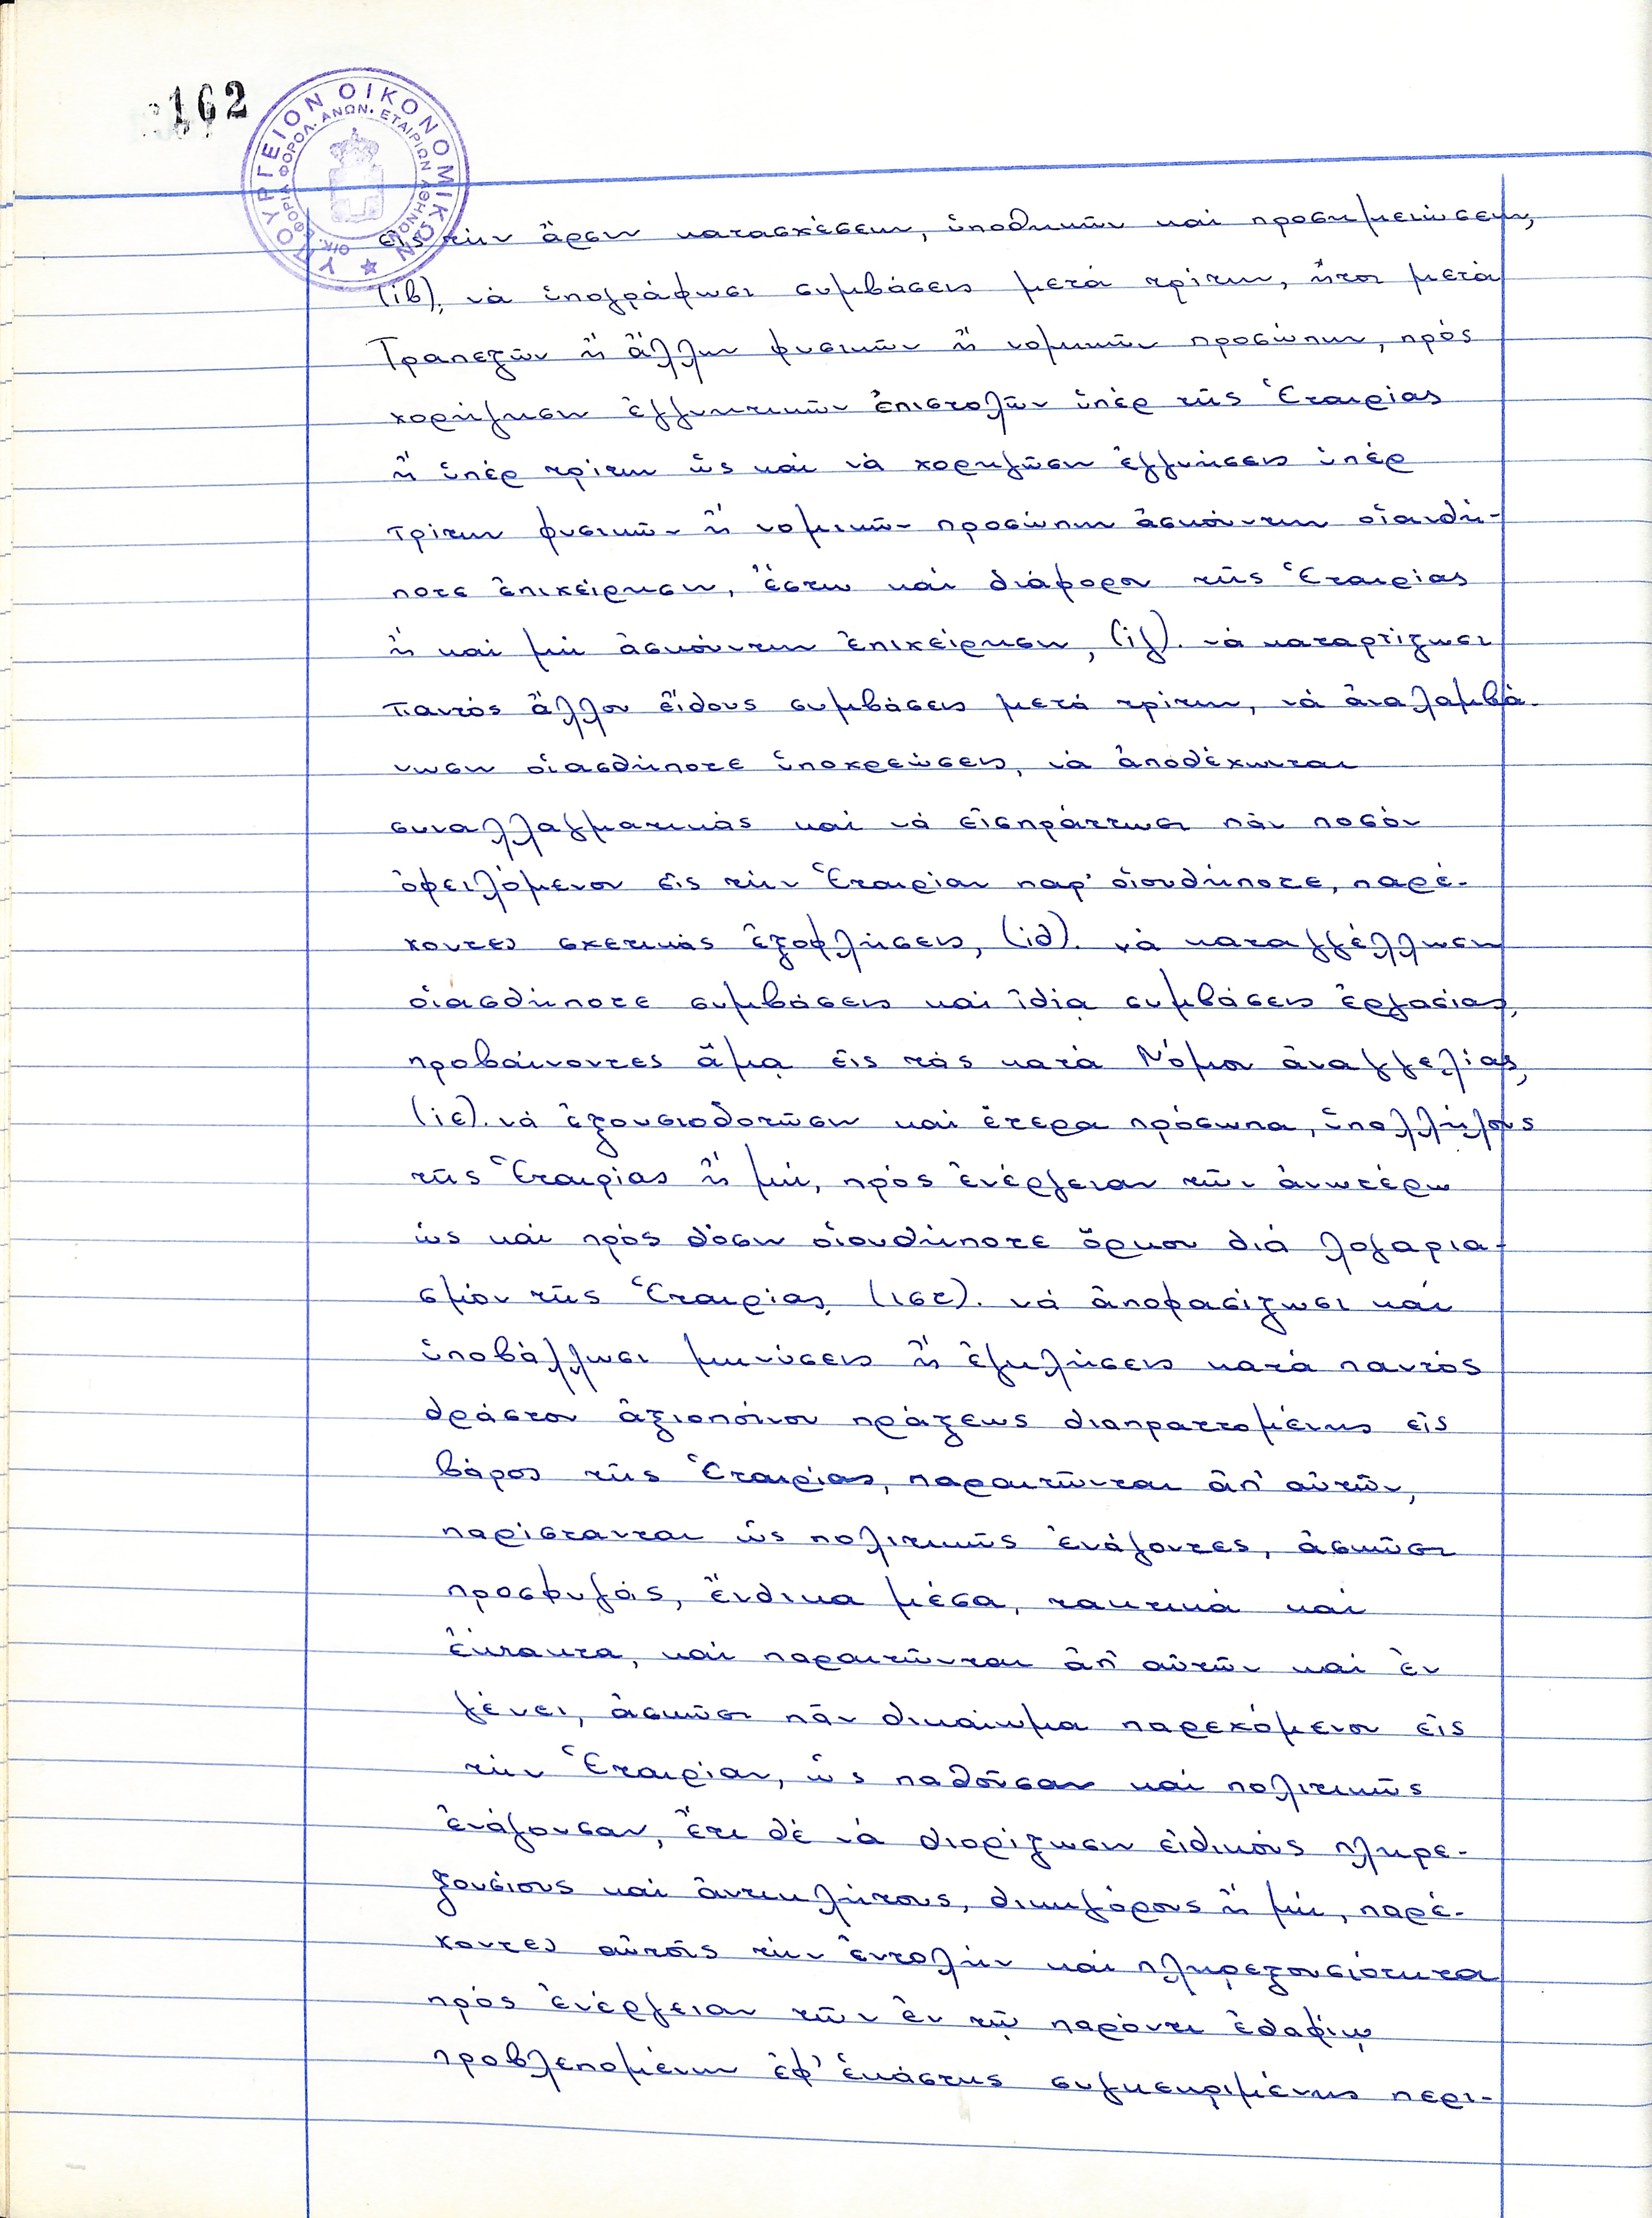 162
ΥΠΟΥΡΓΕΙΟΝ ΟΙΚΟΝΟΜΙΚΩΝ
ΟΙΚ. ΕΦΟΡΙΑ ΦΟΡΟΛ. ΑΝΩΝ. ΕΤΑΙΡΙΩΝ ΑΘΗΝΩΝ
εἰς τὴν ἄρσιν κατασχέσεων, ὑποθηκῶν καὶ προσημειώσεων,
(ιβ). νὰ ὑπογράφωσι συμβάσεις μετὰ τρίτων, ἤτοι μετὰ
Τραπεζῶν ἢ ἄλλων φυσικῶν ἢ νομικῶν προσώπων, πρὸς
χορήγησιν ἐγγυητικῶν ἐπιστολῶν ὑπὲρ τῆς Ἑταιρίας
ἢ ὑπὲρ τρίτων ὡς καὶ νὰ χορηγῶσιν ἐγγυήσεις ὑπὲρ
τρίτων φυσικῶν ἢ νομικῶν προσώπων ἀσκούντων οἱανδή-
ποτε ἐπιχείρησιν, ἔστω καὶ διάφορον τῆς Ἑταιρίας
ἢ καὶ μὴ ἀσκούντων ἐπιχείρησιν, (ιγ). νὰ καταρτίζωσι
παντὸς ἄλλου εἴδους συμβάσεις μετὰ τρίτων, νὰ ἀναλαμβά-
νωσιν οἱασδήποτε ὑποχρεώσεις, νὰ ἀποδέχωνται
συναλλαγματικὰς καὶ νὰ εἰσπράττωσι πᾶν ποσὸν
ὀφειλόμενον εἰς τὴν Ἑταιρίαν παρ' οἱουδήποτε, παρέ-
χοντες σχετικὰς ἐξοφλήσεις, (ιδ). νὰ καταγγέλλωσιν
οἱασδήποτε συμβάσεις καὶ ἰδίᾳ συμβάσεις ἐργασίας,
προβαίνοντες ἅμα εἰς τὰς κατὰ Νόμον ἀναγγελίας,
(ιε). νὰ ἐξουσιοδοτῶσιν καὶ ἕτερα πρόσωπα, ὑπαλλήλους
τῆς Ἑταιρίας ἢ μή, πρὸς ἐνέργειαν τῶν ἀνωτέρω
ὡς καὶ πρὸς δόσιν οἱουδήποτε ὅρκου διὰ λογαρια-
σμὸν τῆς Ἑταιρίας, (ιστ). νὰ ἀποφασίζωσι καὶ
ὑποβάλλωσι μηνύσεις ἢ ἐγκλήσεις κατὰ παντὸς
δράστου ἀξιοποίνου πράξεως διαπραττομένης εἰς
βάρος τῆς Ἑταιρίας, παραιτῶνται ἀπ' αὐτῶν,
παρίστανται ὡς πολιτικῶς ἐνάγοντες, ἀσκῶσι
προσφυγάς, ἔνδικα μέσα, τακτικὰ καὶ
ἔκτακτα, καὶ παραιτῶνται ἀπ' αὐτῶν καὶ ἐν
γένει, ἀσκῶσι πᾶν δικαίωμα παρεχόμενον εἰς
τὴν Ἑταιρίαν, ὡς παθοῦσαν καὶ πολιτικῶς
ἐνάγουσαν, ἔτι δὲ νὰ διορίζωσιν εἰδικοὺς πληρε-
ξουσίους καὶ ἀντικλήτους, δικηγόρους ἢ μή, παρέ-
χοντες αὐτοῖς τὴν ἐντολὴν καὶ πληρεξουσιότητα
πρὸς ἐνέργειαν τῶν ἐν τῷ παρόντι ἐδαφίῳ
προβλεπομένων ἐφ' ἑκάστης συγκεκριμένης περι-